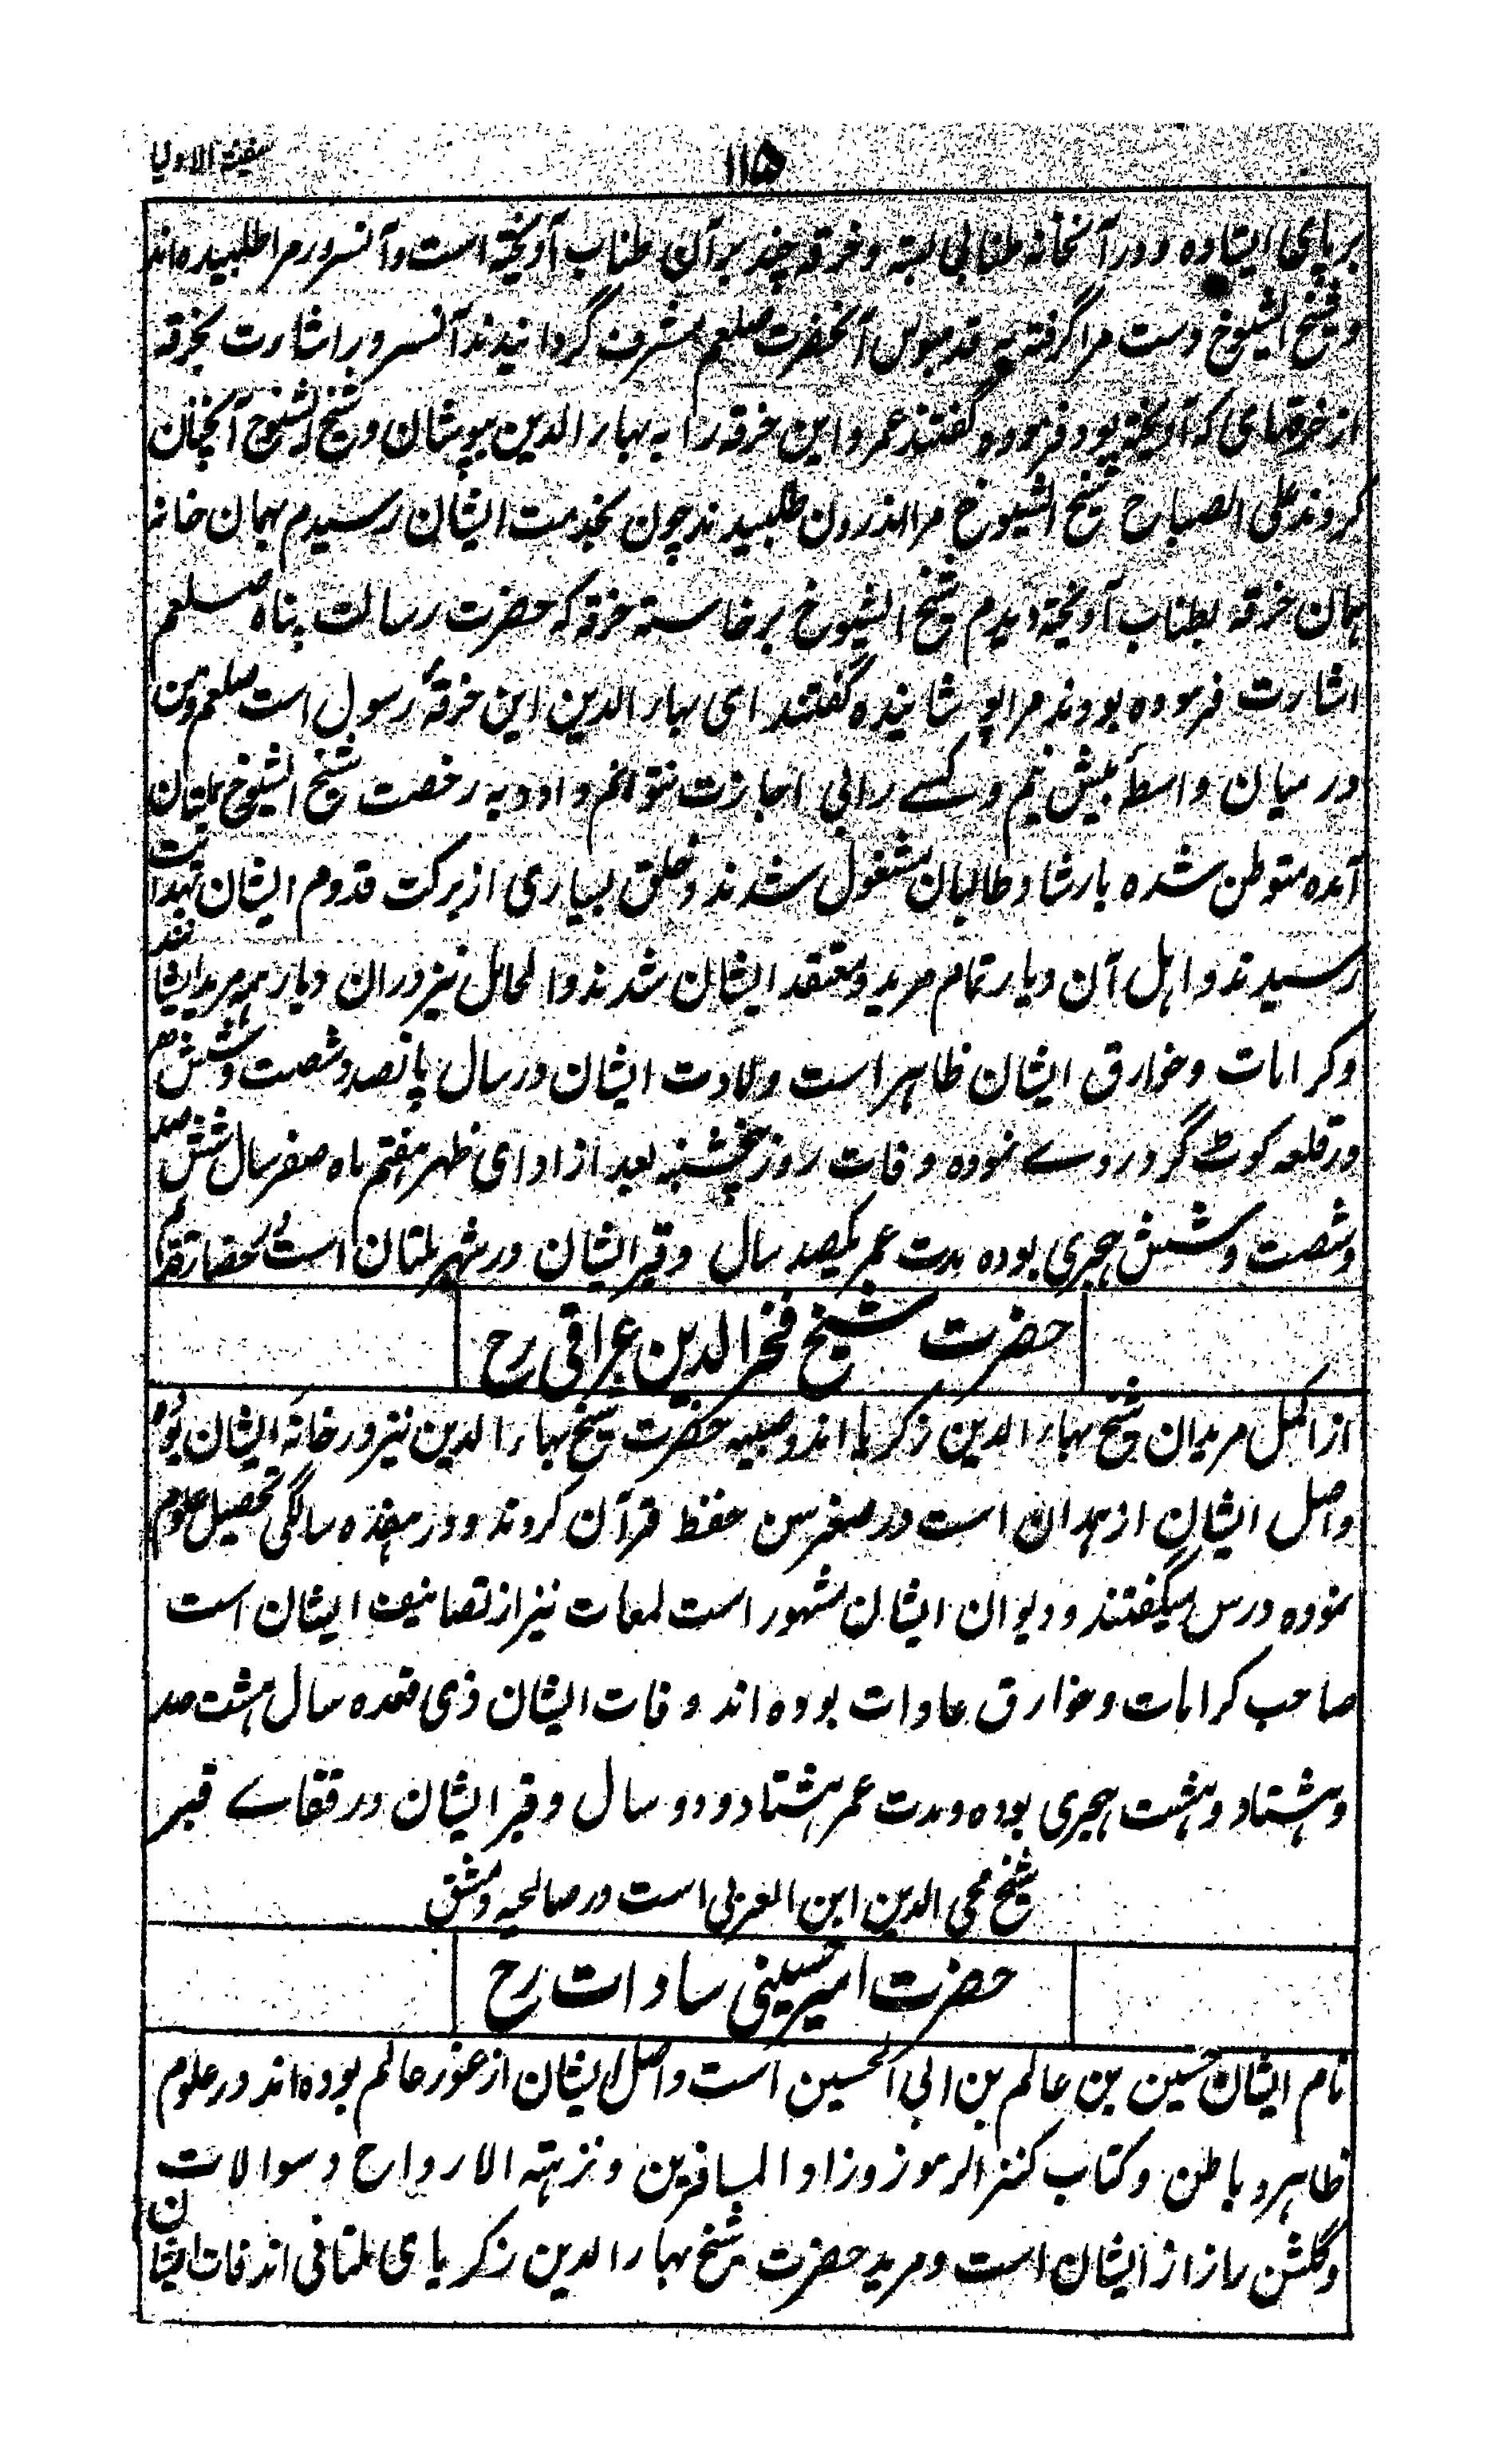 ۱۱۵ سفینة الاولیا
بر پای ایستاده و در آنخانه طنابی بسته و خرقه چند بر آن طناب آویخته است و آنسرور مرا طلبیده اند
و شیخ الشیوخ دست مرا گرفته به قدمبوس آنحضرت صلعم مشرف گردانیدند آنسرور اشارت بخرقه
از خرقهای که آویخته بود فرموده گفتند عمر و این خرقه را به بهاء الدین بپوشان و شیخ الشیوخ آنچنان
کردند علی الصباح شیخ الشیوخ مرا اندرون طلبیدند چون بخدمت ایشان رسیدم بهمان خانه
همان خرقه بطناب آویخته دیدم شیخ الشیوخ برخاسته خرقه که حضرت رسالت پناه صلعم
اشارت فرموده بودند مرا پوشانیده گفتند ای بهاء الدین این خرقهٔ رسول است صلعم و من
در میان واسطه بیش نیم و کسے را بی اجازت نتوانم داد و به رخصت شیخ الشیوخ بملتان
آمده متوطن شده بارشاد طالبان مشغول شدند و خلق بسیاری از برکت قدوم ایشان بهدایت
رسیدند و اهل آن دیار تمام مرید و معتقد ایشان شدند و الحال نیز دران دیار همه مرید ایشانند
و کرامات و خوارق ایشان ظاهر است ولادت ایشان در سال پانصد و شصت و شش
در قلعه کوٹ گرور روے نموده وفات روز پنجشنبه بعد از ادای ظهر هفتم ماه صفر سال شش صد
و شصت و شش هجری بوده مدت عمر یکصد سال و قبر ایشان در شهر ملتان است
حضرت شیخ فخر الدین عراقی رح
از اکمل مریدان شیخ بهاء الدین زکریا اند و صبیه حضرت شیخ بهاء الدین نیز در خانهٔ ایشان بوده
و اصل ایشان از همدان است در صغر سن حفظ قرآن کردند و در هفده سالگی تحصیل علوم
نموده درس میگفتند و دیوان ایشان مشهور است لمعات نیز از تصانیف ایشان است
صاحب کرامات و خوارق عادات بوده اند وفات ایشان ذی قعده سال هشت صد
و هشتاد و هشت هجری بوده و مدت عمر هشتاد و دو سال و قبر ایشان در قفاے قبر
شیخ محی الدین ابن العربی است در صالحیه دمشق
حضرت امیر حسینی سادات رح
نام ایشان حسین بن عالم بن ابی الحسین است و اصل ایشان از غور عالم بوده اند در علوم
ظاهر و باطن و کتاب کنز الرموز و زاد المسافرین و نزهته الارواح و سوالات
و گلشن راز از ایشان است و مرید حضرت شیخ بهاء الدین زکریا ی ملتانی اند فات ایشان